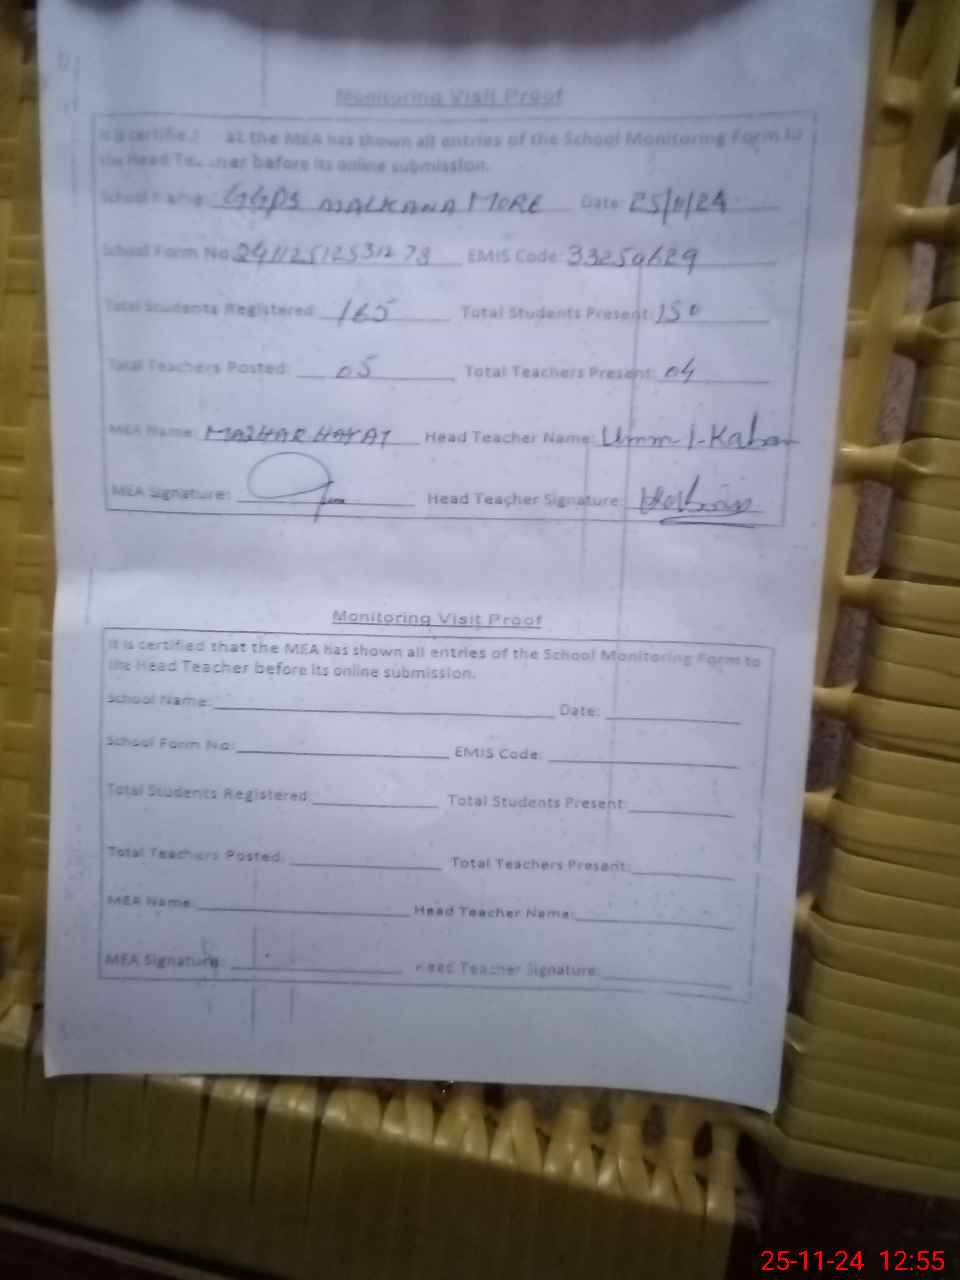 Monitoring Visit Proof
It is certified at the MEA has shown all entries of the School Monitoring Form to
the Head before its online submission.
School Name: GGPS MALKANA MORE Date: 25/11/24
School Form No: EMIS Code:
Total Students Registered: 165 Total Students Present: 150
Total Teachers Posted: 05 Total Teachers Present: 04
MEA Name: MAZHAR HAYAT Head Teacher Name: Umm-i-
MEA Signature: Head Teacher Signature:
Monitoring Visit Proof
It is certified that the MEA has shown all entries of the School Monitoring Form to
the Head Teacher before its online submission.
School Name: Date:
School Form No: EMIS Code:
Total Students Registered: Total Students Present:
Total Teachers Posted: Total Teachers Present:
MEA Name: Head Teacher Name:
MEA Signature: Head Teacher Signature:
25-11-24 12:55